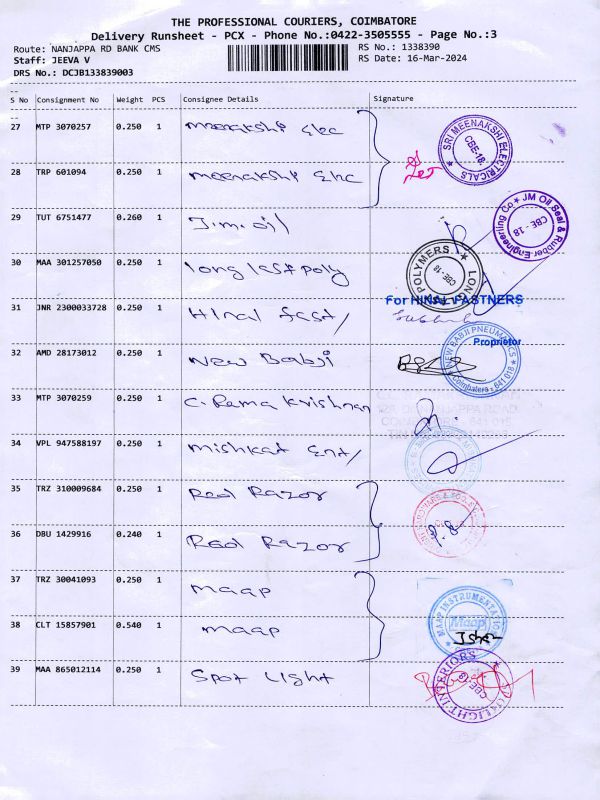 THE PROFESSIONAL COURIERS, COIMBATORE
Delivery Runsheet - PCX - Phone No.:0422-3505555 - Page No.:3
Route: NANJAPPA RD BANK CMS
RS No.: 1338390
Staff: JEEVA V
RS Date: 16-Mar-2024
DRS No.: DCJB133839003
S No Consignment No Weight PCS Consignee Details Signature
27 MTP 3070257 0.250 1 meenakshi Elec
SRI MEENAKSHI ELECTRICALS CBE-18.
28 TRP 601094 0.250 1 meenakshi Elec
29 TUT 6751477 0.260 1 J.m.oil
JM Oil Seal & Rubber Engineering Co CBE - 18
30 MAA 301257050 0.250 1 long last poly
LONG POLYMERS CBE-18
31 JNR 2300033728 0.250 1 Hinal fast/
For HINAL FASTNERS
Proprietor
32 AMD 28173012 0.250 1 New Babji
NEW BABJI PNEUMATICS Coimbatore - 641 018
33 MTP 3070259 0.250 1 C. Rama Krishnan
34 VPL 947588197 0.250 1 mishkat Ent/
35 TRZ 310009684 0.250 1 Red Razor
36 DBU 1429916 0.240 1 Red Razor
37 TRZ 30041093 0.250 1 maap
MAAP INSTRUMENTATIO Maap
38 CLT 15857901 0.540 1 maap
39 MAA 865012114 0.250 1 Spot Light
LIGHT INTERIORS CBE-18